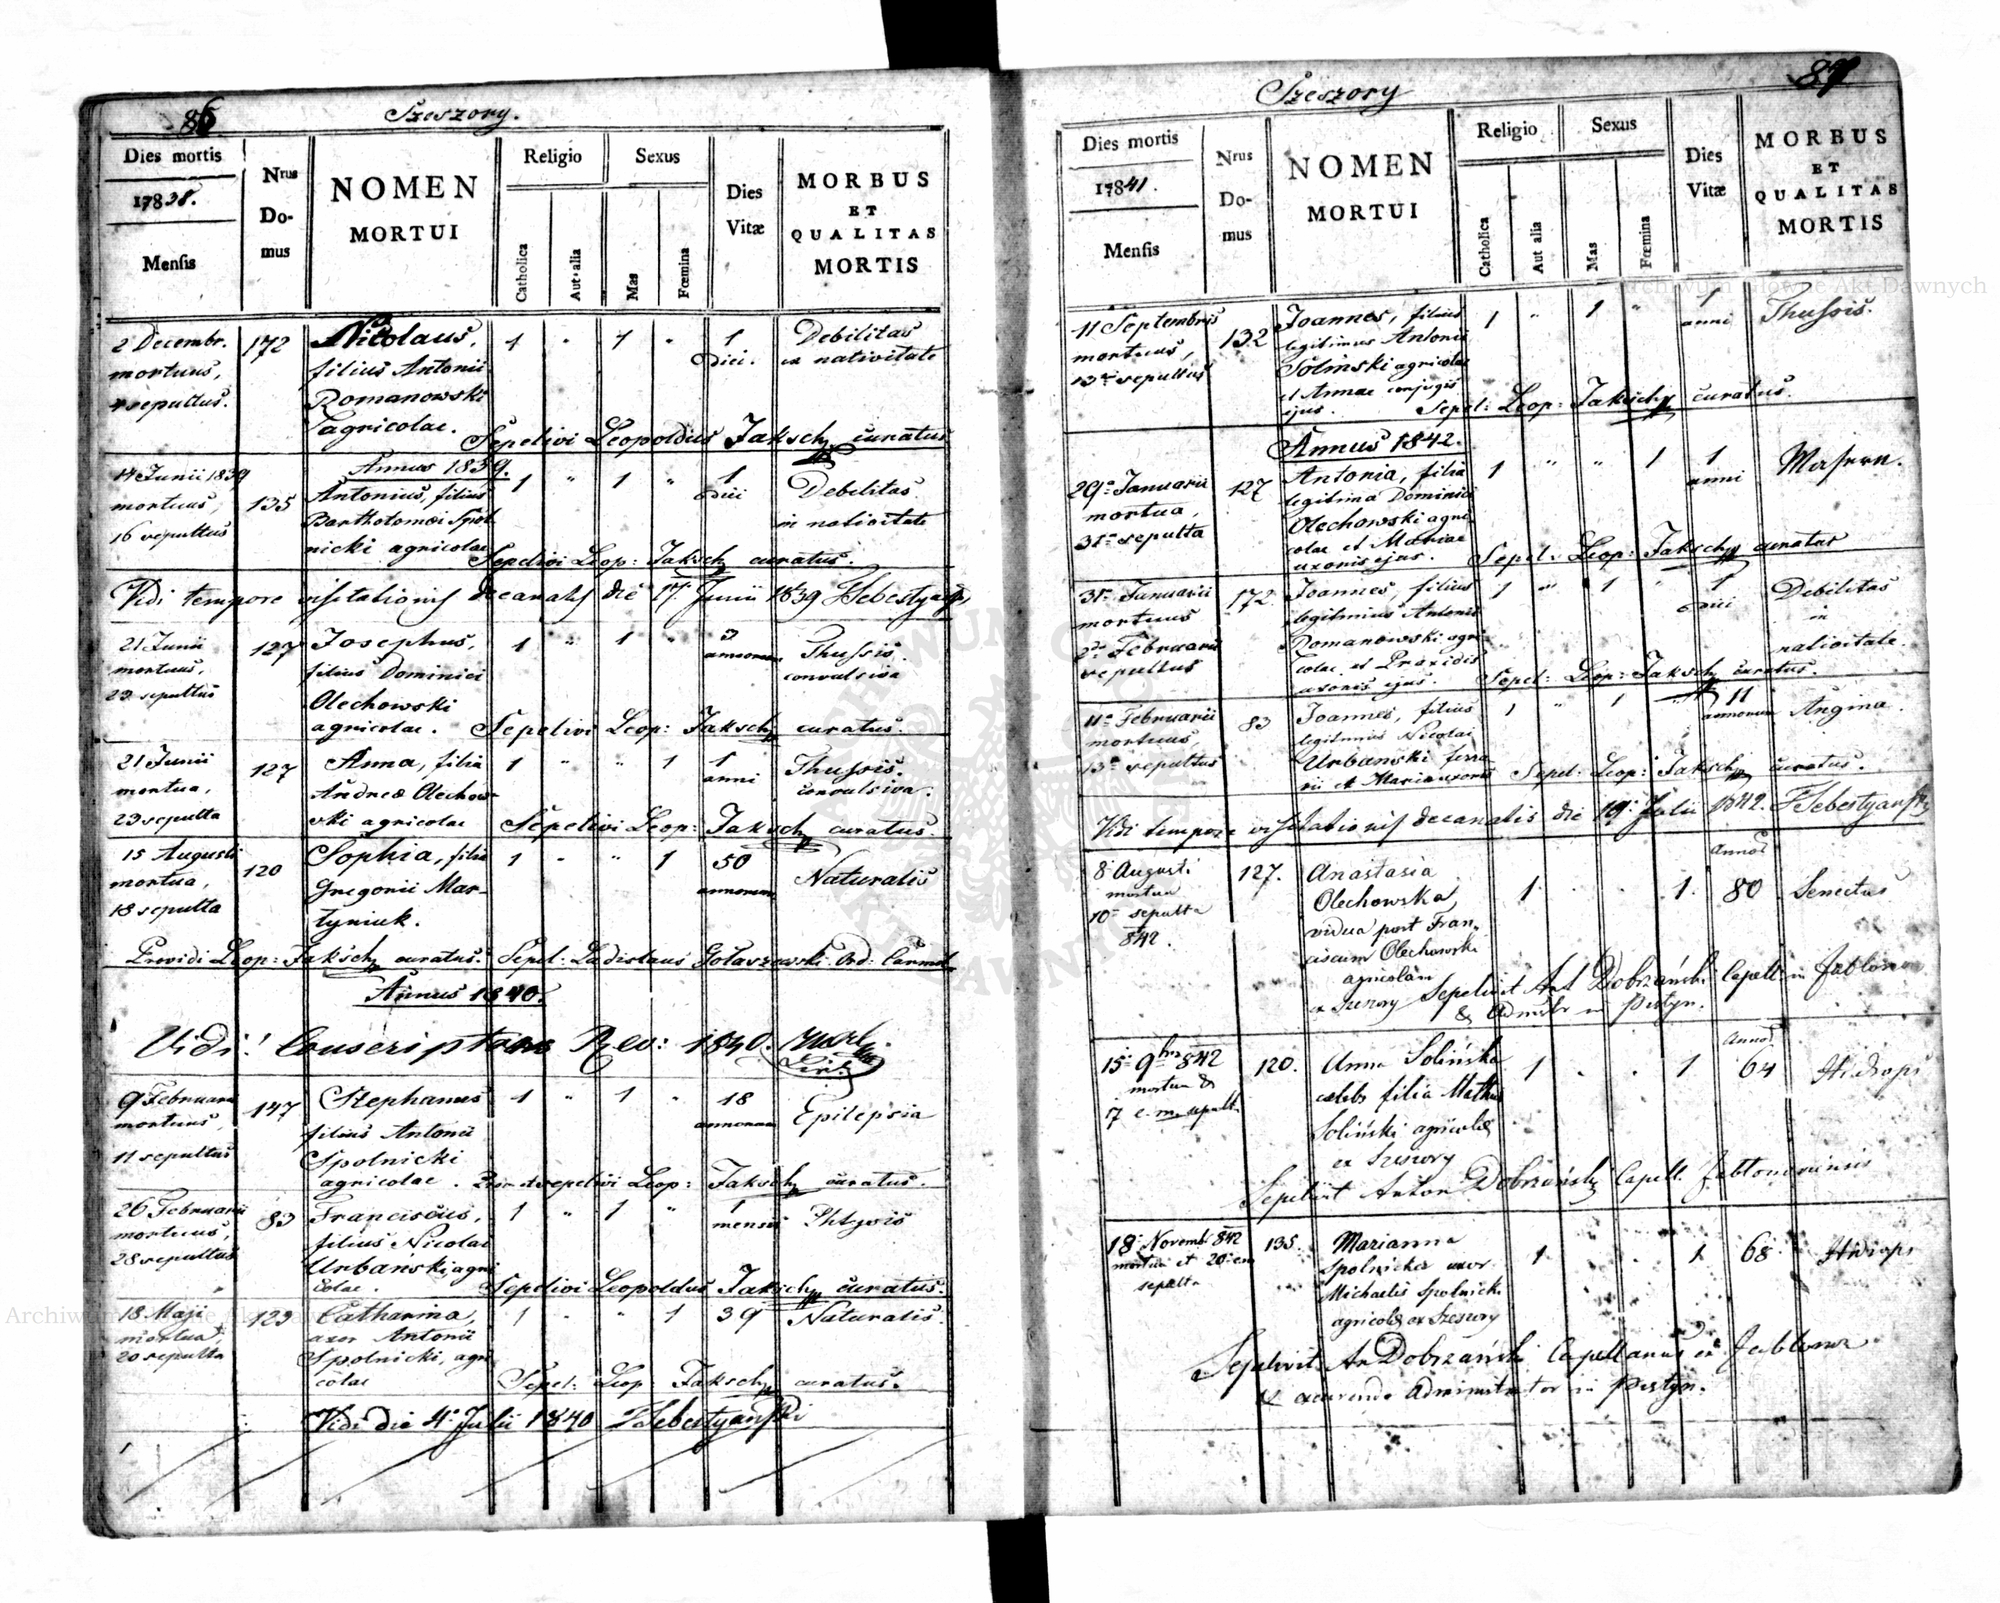 86
Szeszory.
Dies mortis
17838.
Mensis
Nrus
Do-
mus
NOMEN
MORTUI
Religio
Catholica
Aut alia
Sexus
Mas
Fœmina
Dies
Vitæ
MORBUS
ET
QUALITAS
MORTIS
2 Decembr. 172 Nicolaus, 1 " 1 " 1 Debilitas
mortuus, filius Antonii Diei. ex nativitate
4 sepultus. Romanowski
agricolae. Sepelivi Leopoldus Jaksch curatus
Annus 1839.
14 Junii 1839 135 Antonius, filius 1 " 1 " 1 Debilitas
mortuus, Bartholomæi Spol Diei in nativitate
16 sepultus nicki agricolae Sepelivi Leop: Jaksch curatus.
Vidi tempore visitationis decanatus die 17 Junii 1839 FSebestyański
21 Junii 127 Josephus, 1 " 1 " 3 Thussis
mortuus, filius Dominici annorum convulsiva
23 sepultus Olechowski
agricolae. Sepelivi Leop: Jaksch curatus.
21 Junii 127 Anna, filia 1 " " 1 1 Thussis
mortua, Andreæ Olechow- anni convulsiva.
23 sepulta ski agricolae Sepelivi Leop: Jaksch curatus.
15 Augusti 120 Sophia, filia 1 " " 1 50 Naturalis
mortua, Gregorii Mar- annorum
18 sepulta tyniuk.
Providi Leop: Jaksch curatus. Sepel: Ladislaus Gołaszewski Ord: Carmel
Annus 1840.
Vidi! Conscriptions Rev: 1840.
9 Februarii 147 Stephanus 1 " 1 " 18 Epilepsia
mortuus, filius Antonii annorum
11 sepultus Spolnicki
agricolae. sepelivi Leop: Jaksch curatus.
26 Februarii 83 Franciscus, 1 " 1 " 1 Phtysis
mortuus, filius Nicolai mensis
28 sepultus Urbański agri
colae. Sepelivi Leopoldus Jaksch curatus.
18 Maji 123 Catharina, 1 " " 1 39 Naturalis.
mortua, uxor Antonii
20 sepulta Spolnicki, agri
colae Sepel: Leop: Jaksch curatus.
Vidi die 4a Julii 1840 FSebestyański
87
Szeszory
Dies mortis
17841.
Mensis
Nrus
Do-
mus
NOMEN
MORTUI
Religio
Catholica
Aut alia
Sexus
Mas
Fœmina
Dies
Vitæ
MORBUS
ET
QUALITAS
MORTIS
11 Septembris 132 Joannes, filius 1 " 1 " 1 Thussis.
mortuus, legitimus Antonii anni
13a sepultus Soliński agricolae
et Annae conjugis
ejus. Sepel: Leop: Jaksch curatus.
Annus 1842.
29a Januarii 127 Antonia, filia 1 " " 1 1 Masern.
mortua, legitima Dominici anni
31a sepulta Olechowski agri
colae et Mariae
uxoris ejus. Sepel: Leop: Jaksch curatus
31a Januarii 172. Joannes, filius 1 " 1 " 1 Debilitas
mortuus legitimus Antonii Diei in
2da Februarii Romanowski agri nativitate.
sepultus colae et Praxidis
uxoris ejus. Sepel: Leop: Jaksch curatus.
11a Februarii 83 Joannes, filius 1 " 1 " 11 Angina.
mortuus, legitimus Nicolai annorum
13a sepultus Urbański ferra
rii et Maria uxoris Sepel: Leop: Jaksch curatus.
Vidi tempore visitationis decanatis die 19a Julii 1842. FSebestyański
8 Augusti 127. Anastasia 1 . . 1. Annos 80 Senectus
mortua Olechowska,
10a sepulta vidua post Fran-
842. ciscum Olechowski
agricolam
ex Szeszory Sepelivit Ant Dobrzański Capell: in Jablonow
& Adminstr in Pistyn.
15 9bris 842 120. Anna Solińska 1 . . 1 Annos 64 Hidrops
mortua & celebs filia Mathiae
17 e. m. sepulta Soliński agricolæ
ex Szeszory
Sepelivit Anton Dobrzański Capell. Jabłonoviensis
18 Novemb: 842 135. Marianna 1 . . 1 68 Hidrops
mortua et 20 em Spolnicka uxor
sepulta Michaelis Spolnicki
agricolæ ex Szeszory
Sepelivit An Dobrzański Capellanus ex Jablonow
& excurendo Administrator in Pistyn.
Archiwum Główne Akt Dawnych
Archiwum Główne Akt Dawnych